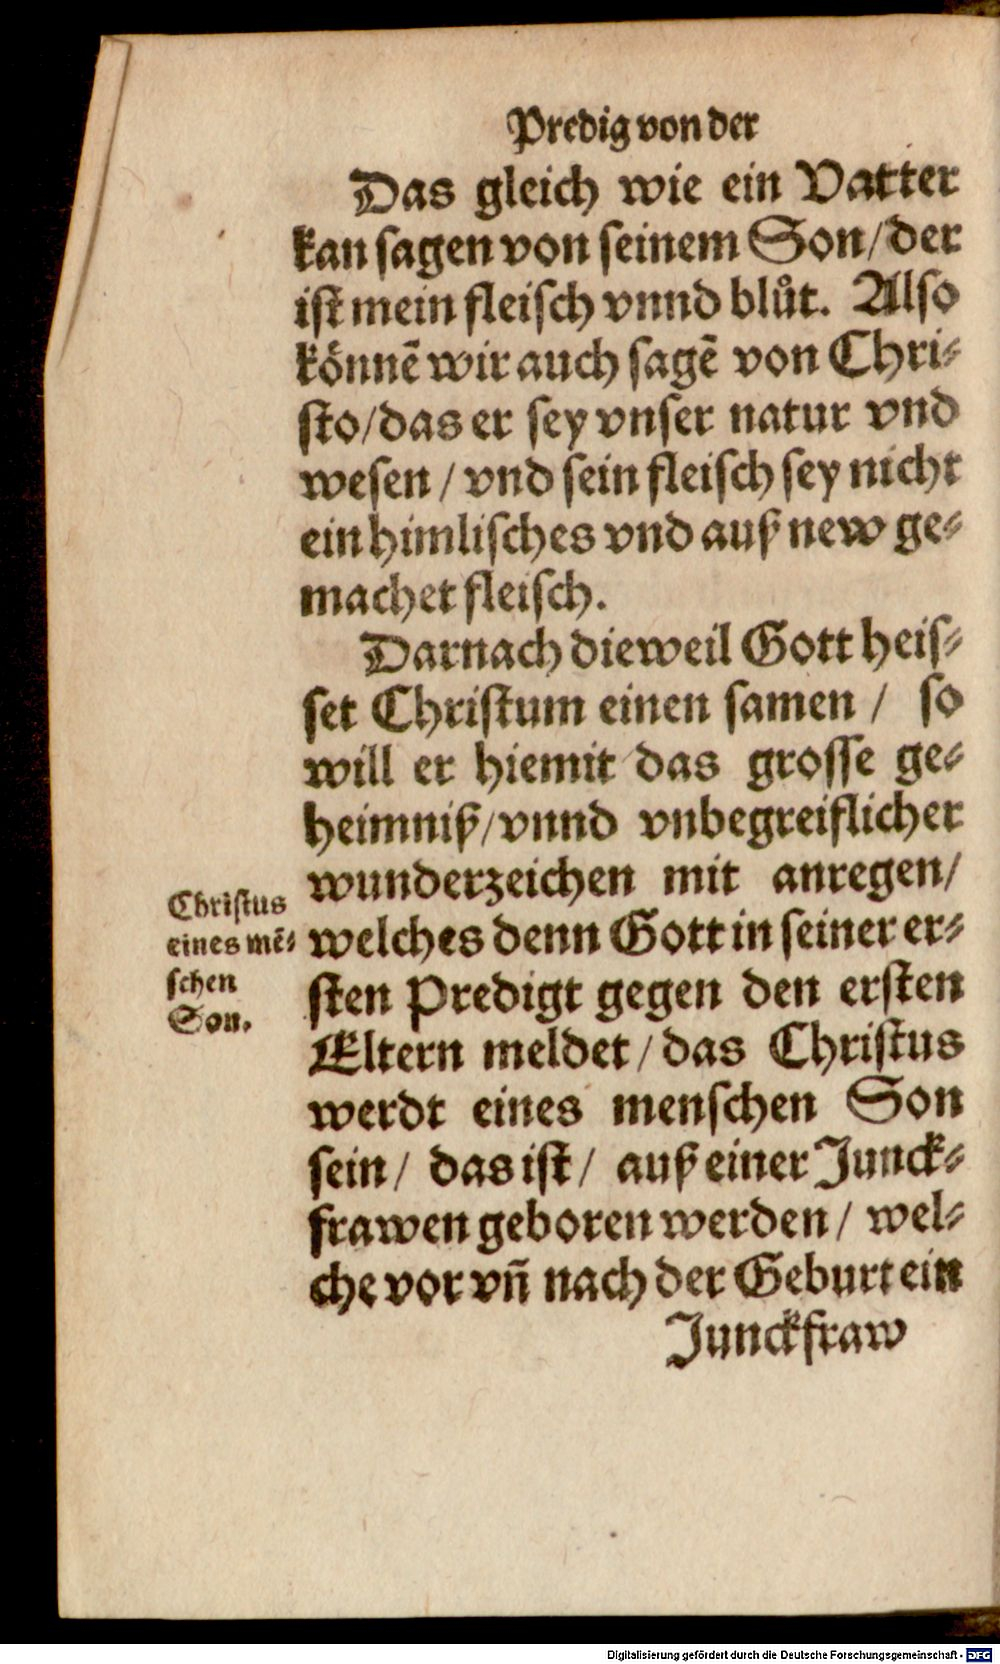 Predig von der
Das gleich wie ein Vatter
kan sagen von seinem Son/der
ist mein fleisch vnnd blůt. Also
können̄ wir auch sagē von Chri⸗
sto/das er sey vnser natur vnd
wesen / vnd sein fleisch sey nicht
ein himlisches vnd auß new ge⸗
machet fleisch.
Darnach dieweil Gott heis⸗
set Christum einen samen / so
will er hiemit das grosse ge⸗
heimniß/vnnd vnbegreiflicher
wunderzeichen mit anregen/
welches denn Gott in seiner er⸗
sten Predigt gegen den ersten
Eltern meldet/das Christus
werdt eines menschen Son
sein/ das ist/ auß einer Junck⸗
frawen geboren werden/ wel⸗
che vor vn̄ nach der Geburt ein
Junckfraw
Christus
eines mē⸗
schen
Son.
Digitalisierung gefördert durch die Deutsche Forschungsgemeinschaft - DFG